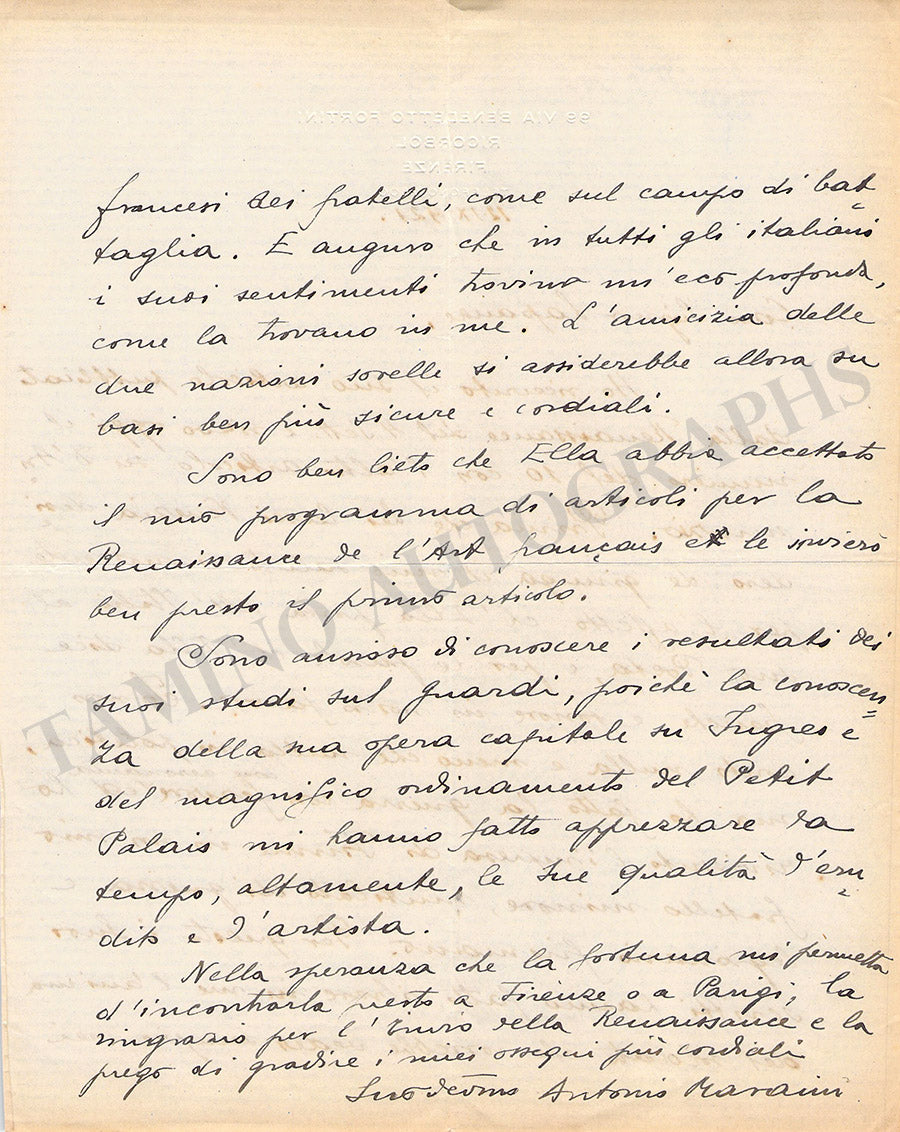 francesi dei fratelli, come sul campo di bat=
taglia. E auguro che in tutti gli italiani
i suoi sentimenti trovino un'eco profonda,
come la trovano in me. L'amicizia delle
due nazioni sorelle si assiderebbe allora su
basi ben più sicure e cordiali.
Sono ben lieto che Ella abbia accettato
il mio programma di articoli per la
Renaissance de l'Art français e le invierò
ben presto il primo articolo.
Sono ansioso di conoscere i resultati dei
suoi studi sul Guardi, poichè la conoscen=
za della sua opera capitale su Ingres e
del magnifico ordinamento del Petit
Palais mi hanno fatto apprezzare da
tempo, altamente, le sue qualità d'eru=
dito e d'artista.
Nella speranza che la fortuna mi permetta
d'incontrarla presto a Firenze o a Parigi, la
ringrazio per l'invio della Renaissance e la
prego di gradire i miei ossequi più cordiali
Suo devmo Antonio Maraini
99 VIA BENEDETTO FORTINI
RICORBOLI
FIRENZE
TAMINO AUTOGRAPHS